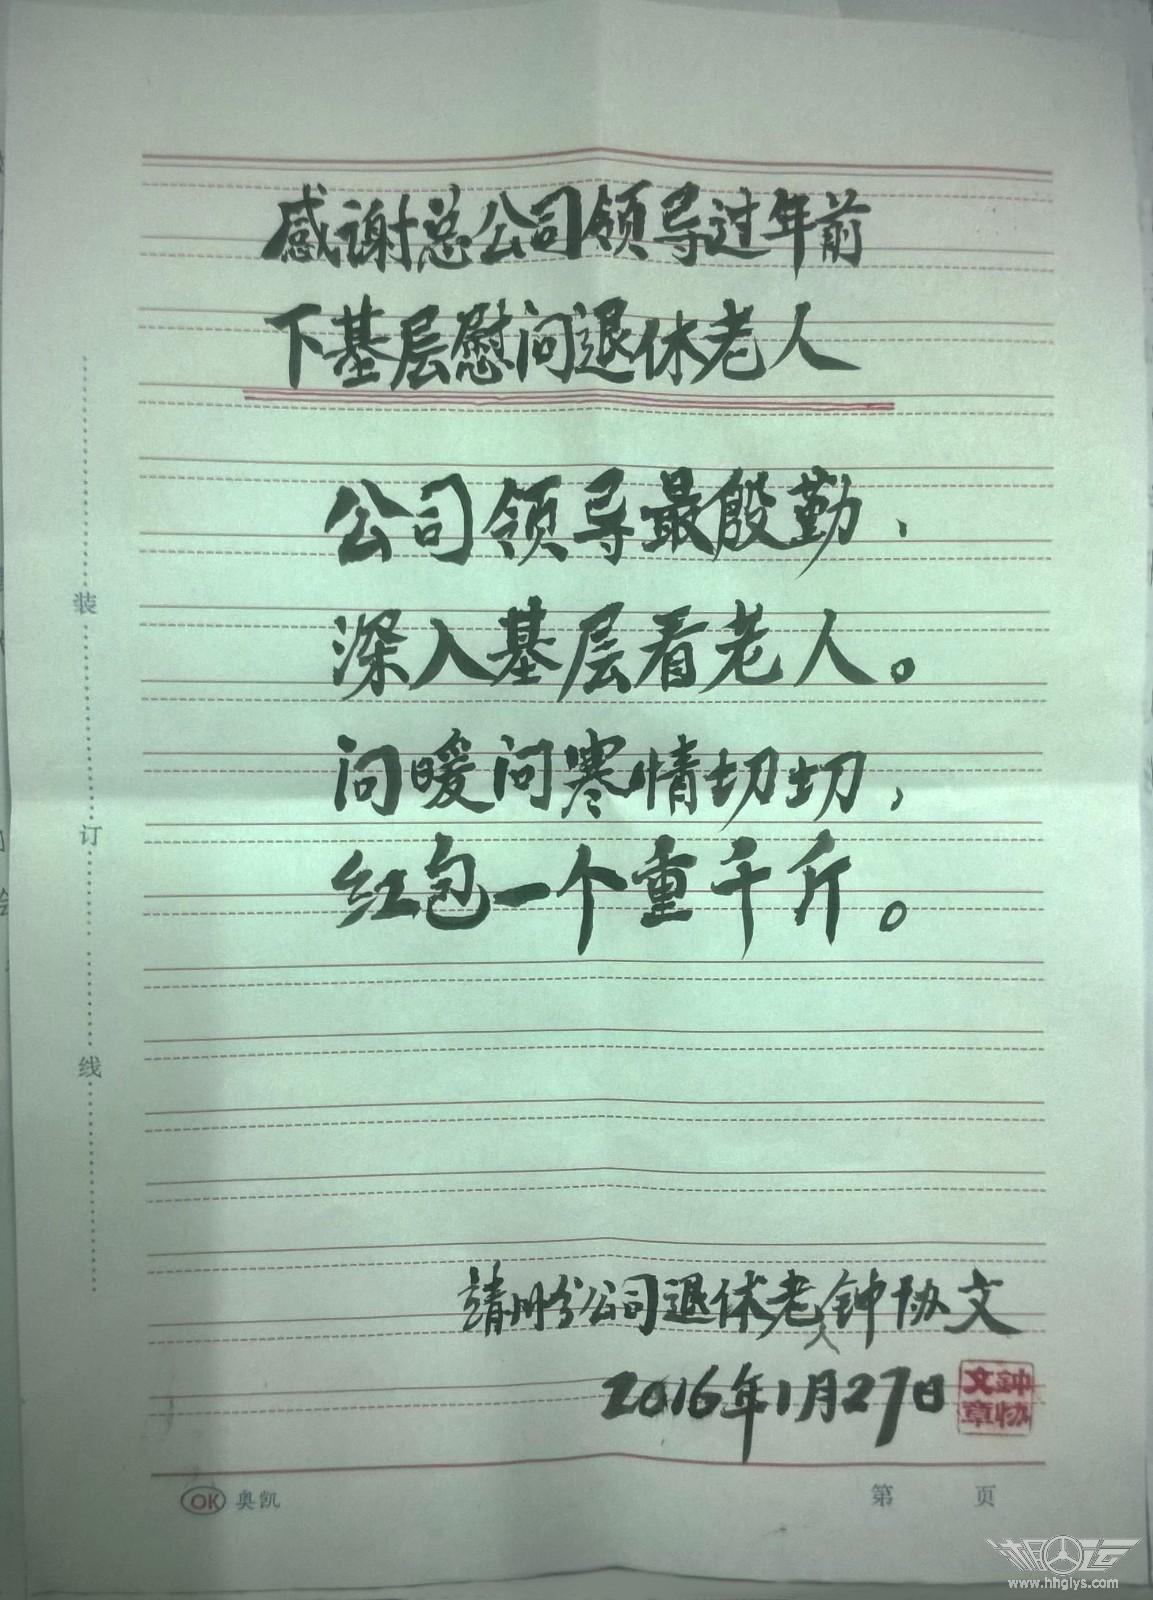 感谢总公司领导过年前
下基层慰问退休老人
公司领导最殷勤、
深入基层看老人。
问暖问寒情切切,
红包一个重千斤。
靖州分公司退休老人钟协文
2016年1月27日
钟协文章
装
订
线
OK 奥凯
第 页
湘运
www.hhglys.com